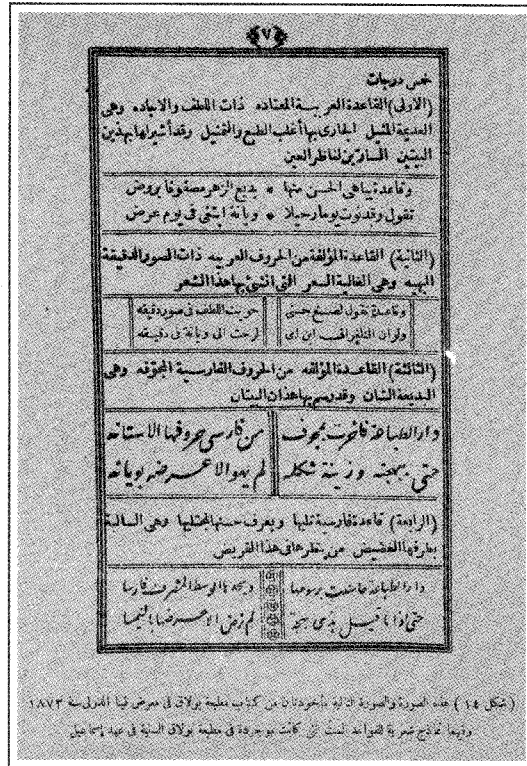 ٧
خمس درجات
(الاولى) القاعدة العربية المعتاده ذات اللطف والاجاده وهى
العديمة المثيل الجارى بها أغلب الطبع والتمثيل وقد أشير لها بهذين
البيتين السارّين لناظر العين
وقاعدة يباهى الحسن منها * بديع الزهر مصفوفا بروض
تقول وقد نوت يوما رحيلا * ويانة ابتغى فى يوم عرض
(الثانية) القاعدة المؤلفة من الحروف العربيه ذات الصور الدقيقة
البهيه وهى الغالية السعر التى انبئ بها هذا الشعر
وقاعدة تقول لصبغ حسنى حويت اللطف فى صور دقيقه
ولو ان التلغراف ابن اى لرحت الى ويانة فى دقيقه
(الثالثة) القاعدة المؤلفه من الحروف الفارسية المجوّفه وهى
البديعة الشان وقد رسم بها هذان البيتان
دار الطباعة فاخرت بمجوف من فارسى حروفها الاستانه
حتى ببهجته وزينة شكله لم يهو الا عرضه بويانه
(الرابعة) قاعدة فارسية تليها ويعرف حسنها مجتليها وهى السالبة
بطرفها الغضيض من ينظرها فى هذا القريض
دار الطباعة فارسا
حتى اذا ما قيل لم ترض الا عرضها
(شكل ١٤) هذه الصورة والصورة التالية مأخوذتان من كتاب مطبعة بولاق فى معرض فينا الدولى سنة ١٨٧٣
وفيهما نماذج شعرية للقواعد الست التى كانت موجودة فى مطبعة بولاق السنية فى عهد إسماعيل